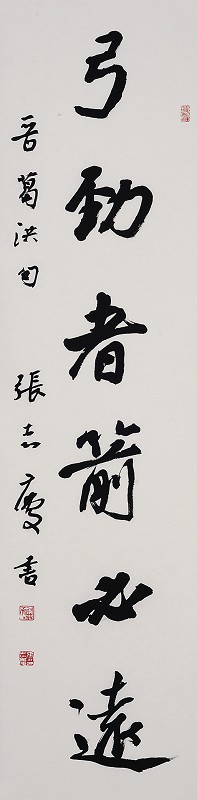 弓勁者箭必遠
晉葛洪句 張志慶書